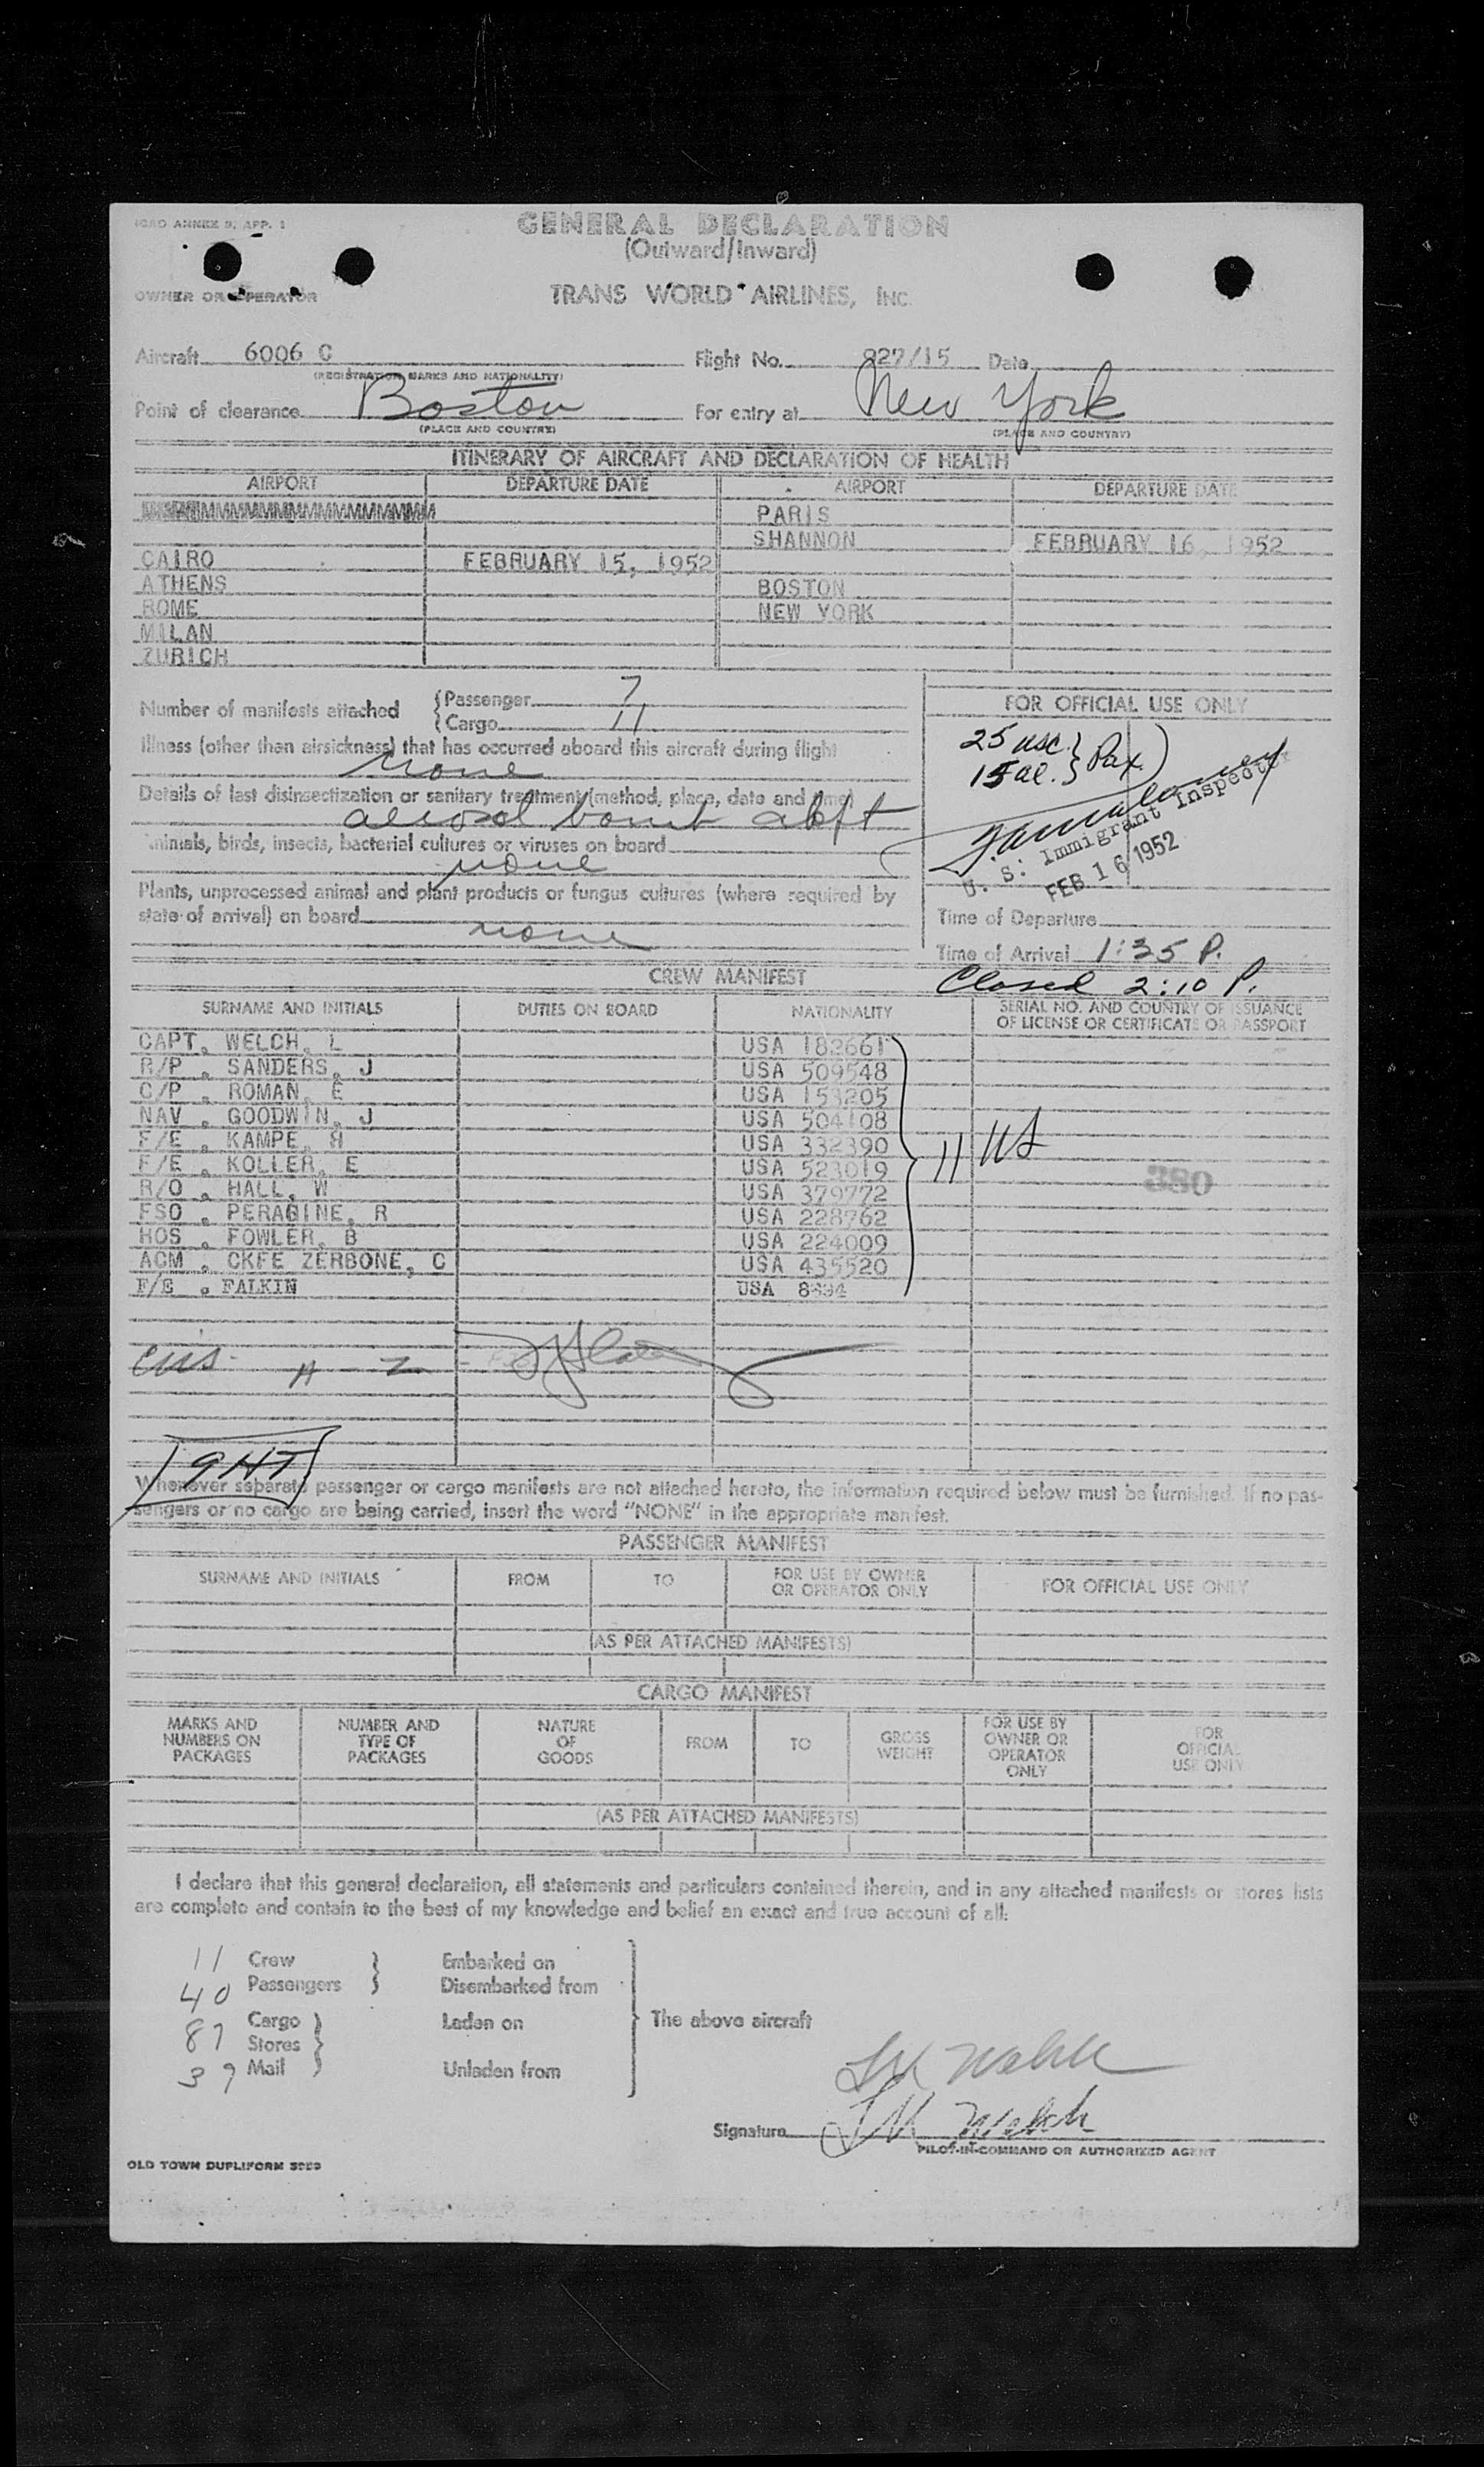 ICAO ANNEX 9, APP. 1
GENERAL DECLARATION
(Outward/Inward)
OWNER OR OPERATOR
TRANS WORLD AIRLINES, INC.
Aircraft 6006 C Flight No. 927/15 Date
(REGISTRATION MARKS AND NATIONALITY)
Point of clearance Boston For entry at New York
(PLACE AND COUNTRY) (PLACE AND COUNTRY)
ITINERARY OF AIRCRAFT AND DECLARATION OF HEALTH
AIRPORT DEPARTURE DATE AIRPORT DEPARTURE DATE
PARIS
SHANNON FEBRUARY 16, 1952
CAIRO FEBRUARY 15, 1952
ATHENS BOSTON
ROME NEW YORK
MILAN
ZURICH
Number of manifests attached {Passenger 7
{Cargo 11
FOR OFFICIAL USE ONLY
25 usc } Pax )
15 al. }
Illness (other than airsickness) that has occurred aboard this aircraft during flight
none
Details of last disinsectization or sanitary treatment (method, place, date and time)
aerosol bomb abft
Animals, birds, insects, bacterial cultures or viruses on board
none
U. S. Immigrant Inspector
FEB 16 1952
Plants, unprocessed animal and plant products or fungus cultures (where required by
state of arrival) on board
none
Time of Departure
Time of Arrival 1:35 P.
Closed 2:10 P.
CREW MANIFEST
SURNAME AND INITIALS DUTIES ON BOARD NATIONALITY SERIAL NO. AND COUNTRY OF ISSUANCE
OF LICENSE OR CERTIFICATE OR PASSPORT
CAPT. WELCH, L USA 182661
R/P . SANDERS, J USA 509548
C/P . ROMAN, E USA 153205
NAV . GOODWIN, J USA 504108
F/E . KAMPE, H USA 332390
F/E . KOLLER, E USA 523019
R/O . HALL, W USA 379772
FSO . PERAGINE, R USA 228762
HOS . FOWLER, B USA 224009
ACM . CKFE ZERBONE, C USA 435520
F/E . FALKIN USA
11 US
380
Whenever separate passenger or cargo manifests are not attached hereto, the information required below must be furnished. If no pas-
sengers or no cargo are being carried, insert the word "NONE" in the appropriate manifest.
PASSENGER MANIFEST
SURNAME AND INITIALS FROM TO FOR USE BY OWNER
OR OPERATOR ONLY FOR OFFICIAL USE ONLY
(AS PER ATTACHED MANIFESTS)
CARGO MANIFEST
MARKS AND
NUMBERS ON
PACKAGES
NUMBER AND
TYPE OF
PACKAGES
NATURE
OF
GOODS
FROM
TO
GROSS
WEIGHT
FOR USE BY
OWNER OR
OPERATOR
ONLY
FOR
OFFICIAL
USE ONLY
(AS PER ATTACHED MANIFESTS)
I declare that this general declaration, all statements and particulars contained therein, and in any attached manifests or stores lists
are complete and contain to the best of my knowledge and belief an exact and true account of all:
11 Crew } Embarked on
40 Passengers } Disembarked from
87 Cargo } Laden on The above aircraft
Stores }
39 Mail } Unladen from
L M Welch
Signature L M Welch
PILOT-IN-COMMAND OR AUTHORIZED AGENT
OLD TOWN DUPLIFORM